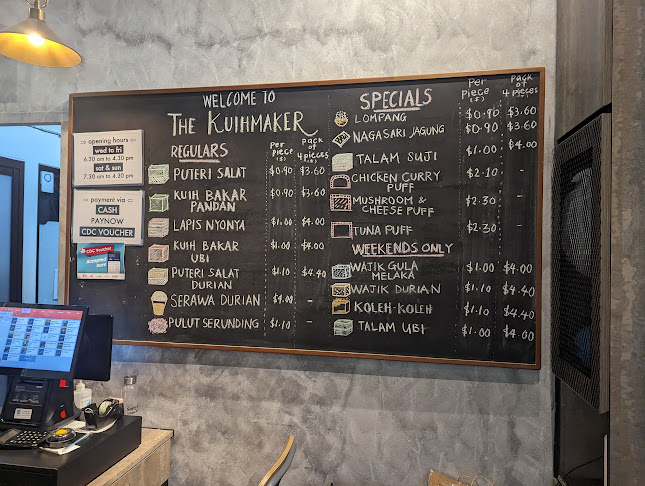 WELCOME TO
THE KUIHMAKER
opening hours
wed to fri
6.30 am to 4.30 pm
sat & sun
7.30 am to 4.30 pm
payment via
CASH
PAYNOW
CDC VOUCHER
CDC Vouchers
Accepted
here
REGULARS PER PIECE ($) PACK OF 4 PIECES ($)
PUTERI SALAT $0.90 $3.60
KUIH BAKAR PANDAN $0.90 $3.60
LAPIS NYONYA $1.00 $4.00
KUIH BAKAR UBI $1.00 $4.00
PUTERI SALAT DURIAN $1.10 $4.40
SERAWA DURIAN $4.00 -
PULUT SERUNDING $1.10 -
SPECIALS PER PIECE ($) PACK OF 4 PIECES ($)
LOMPANG $0.90 $3.60
NAGASARI JAGUNG $0.90 $3.60
TALAM SUJI $1.00 $4.00
CHICKEN CURRY PUFF $2.10 -
MUSHROOM & CHEESE PUFF $2.30 -
TUNA PUFF $2.30 -
WEEKENDS ONLY
WAJIK GULA MELAKA $1.00 $4.00
WAJIK DURIAN $1.10 $4.40
KOLEH-KOLEH $1.10 $4.40
TALAM UBI $1.00 $4.00